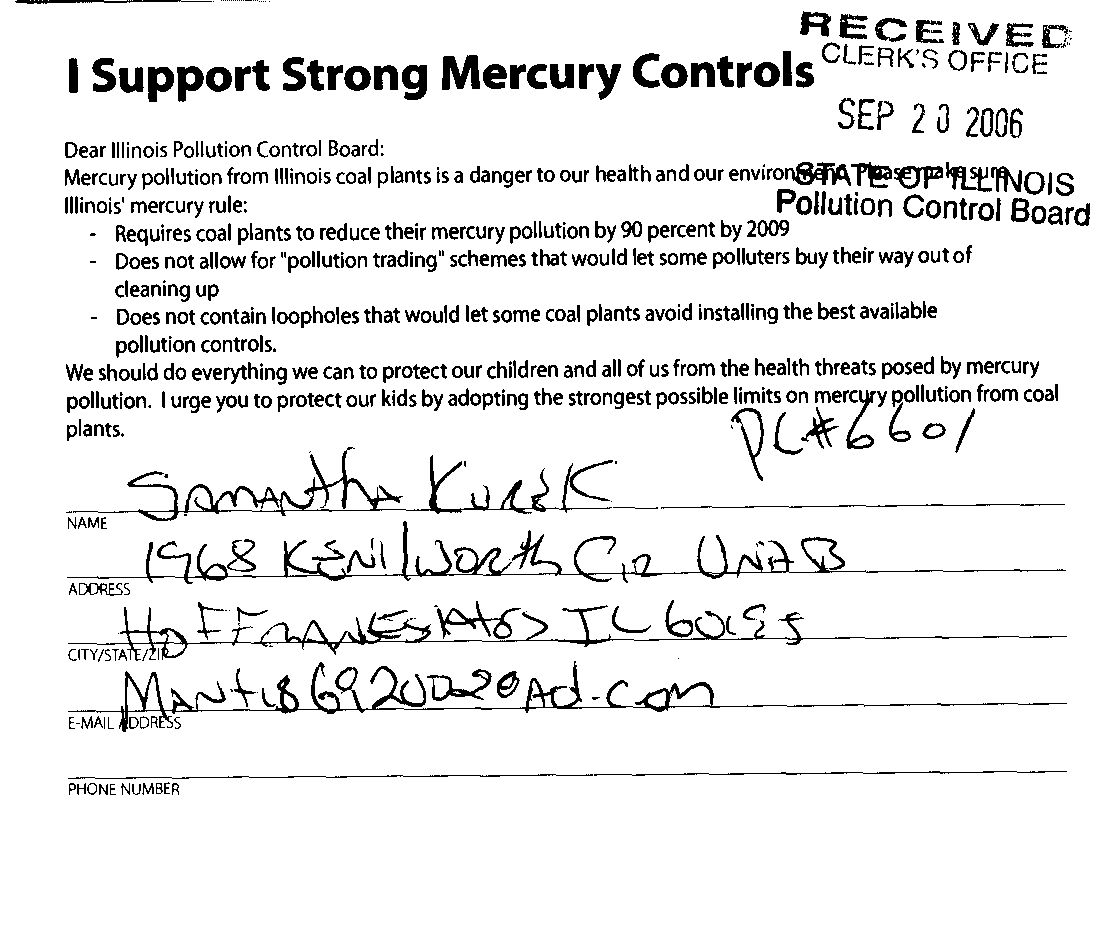 RECEIVED
CLERK'S OFFICE
SEP 20 2006
STATE OF ILLINOIS
Pollution Control Board
I Support Strong Mercury Controls
Dear Illinois Pollution Control Board:
Mercury pollution from Illinois coal plants is a danger to our health and our environment. Please make sure
Illinois' mercury rule:
- Requires coal plants to reduce their mercury pollution by 90 percent by 2009
- Does not allow for "pollution trading" schemes that would let some polluters buy their way out of
cleaning up
- Does not contain loopholes that would let some coal plants avoid installing the best available
pollution controls.
We should do everything we can to protect our children and all of us from the health threats posed by mercury
pollution. I urge you to protect our kids by adopting the strongest possible limits on mercury pollution from coal
plants.
PC#6601
Samantha Kurek
NAME
1968 Kenilworth Cir Unit B
ADDRESS
IL 60195
CITY/STATE/ZIP
E-MAIL ADDRESS
PHONE NUMBER